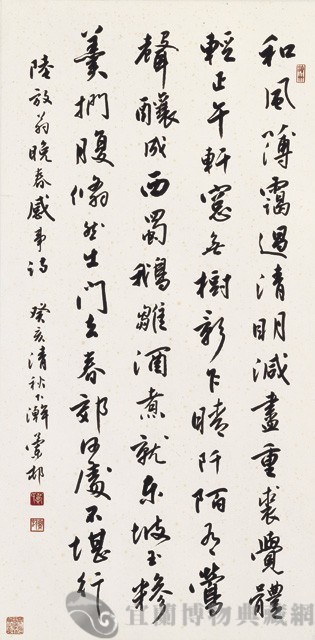 和風薄靄過清明減盡重裘覺體
輕正午軒窗無樹影乍晴阡陌有鶯
聲釀成西蜀鵝雛酒煮就東坡玉糝
羹捫腹翛然出門去春郊何處不堪行
陸放翁晚春感事詩 癸亥清秋下澣
宜蘭博物典藏網